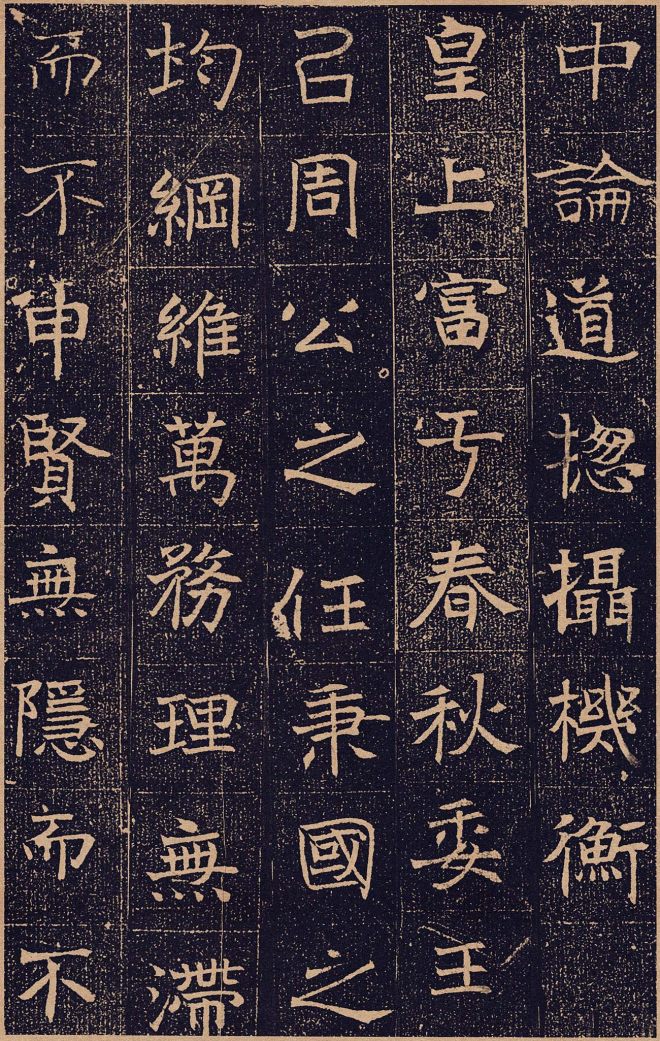 中論道揔攝機衡
皇上富于春秋委王
以周公之任秉國之
均綱維萬務理無滯
而不申賢無隱而不